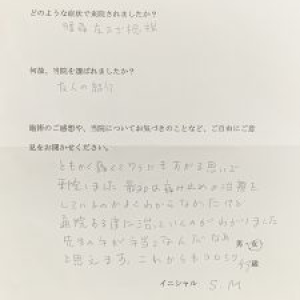 どのような症状で来院されましたか？
何故、当院を選ばれましたか？
友人の紹介
施術のご感想や、当院についてお気づきのことなど、ご自由にご意
見をお聞かせください。
ともかく痛くてワラにもすがる思いで
来院しました 最初は痛み止めの治療を
しているのかよくわからなかったけど
通院する度に治っていくのがわかりました
先生の手が手当てなんだなあ
男・女
と思えます。これからもヨロシク
歳
イニシャル S.M